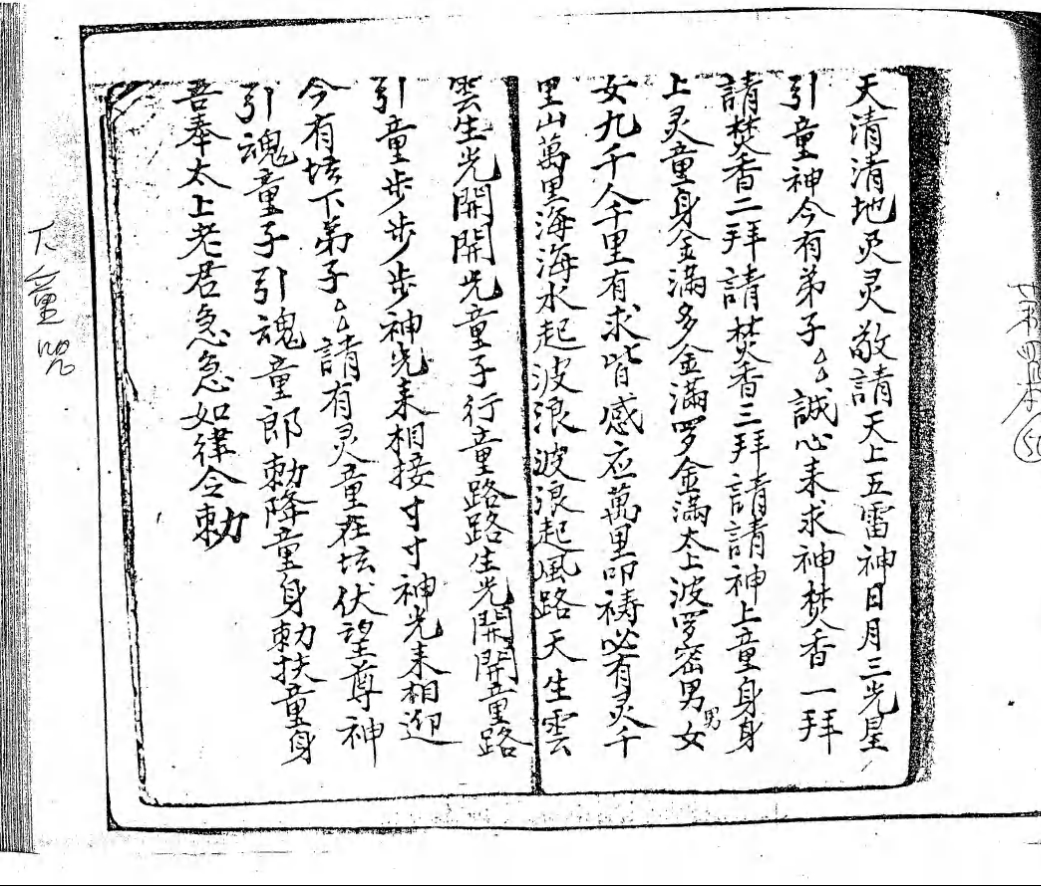 天清清地灵灵敬請天上五雷神日月三光星
引童神今有弟子△△誠心来求神焚香一拜
請焚香二拜請焚香三拜請請神上童身身
上灵童身金滿多金滿罗金滿太上波罗密男男女
女九千人千里有求皆感应萬里叩禱必有灵千
里山萬里海海水起波浪波浪起風路天生雲
雲生光開開光童子行童路路生光開開童路
引童步步步步神光来相接寸寸神光来相迎
今有壇下弟子△△請有灵童在坛伏望尊神
引魂童子引魂童郎勅降童身勅扶童身
吾奉太上老君急急如律令勅
下童咒
50